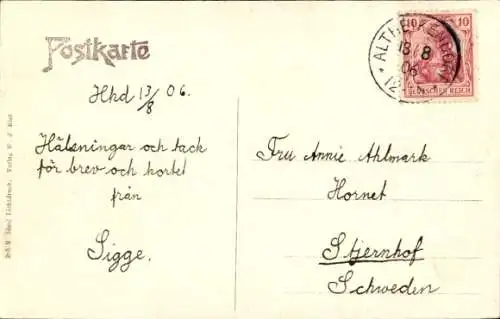 Postkarte
Hkd 13/8 06.
Hälsningar och tack
för brev och kortet
från
Sigge.
10 10
DEUTSCHES REICH
18/8
06
12
Fru Annie Ahlmark
Hornet
Stjernhof
Schweden